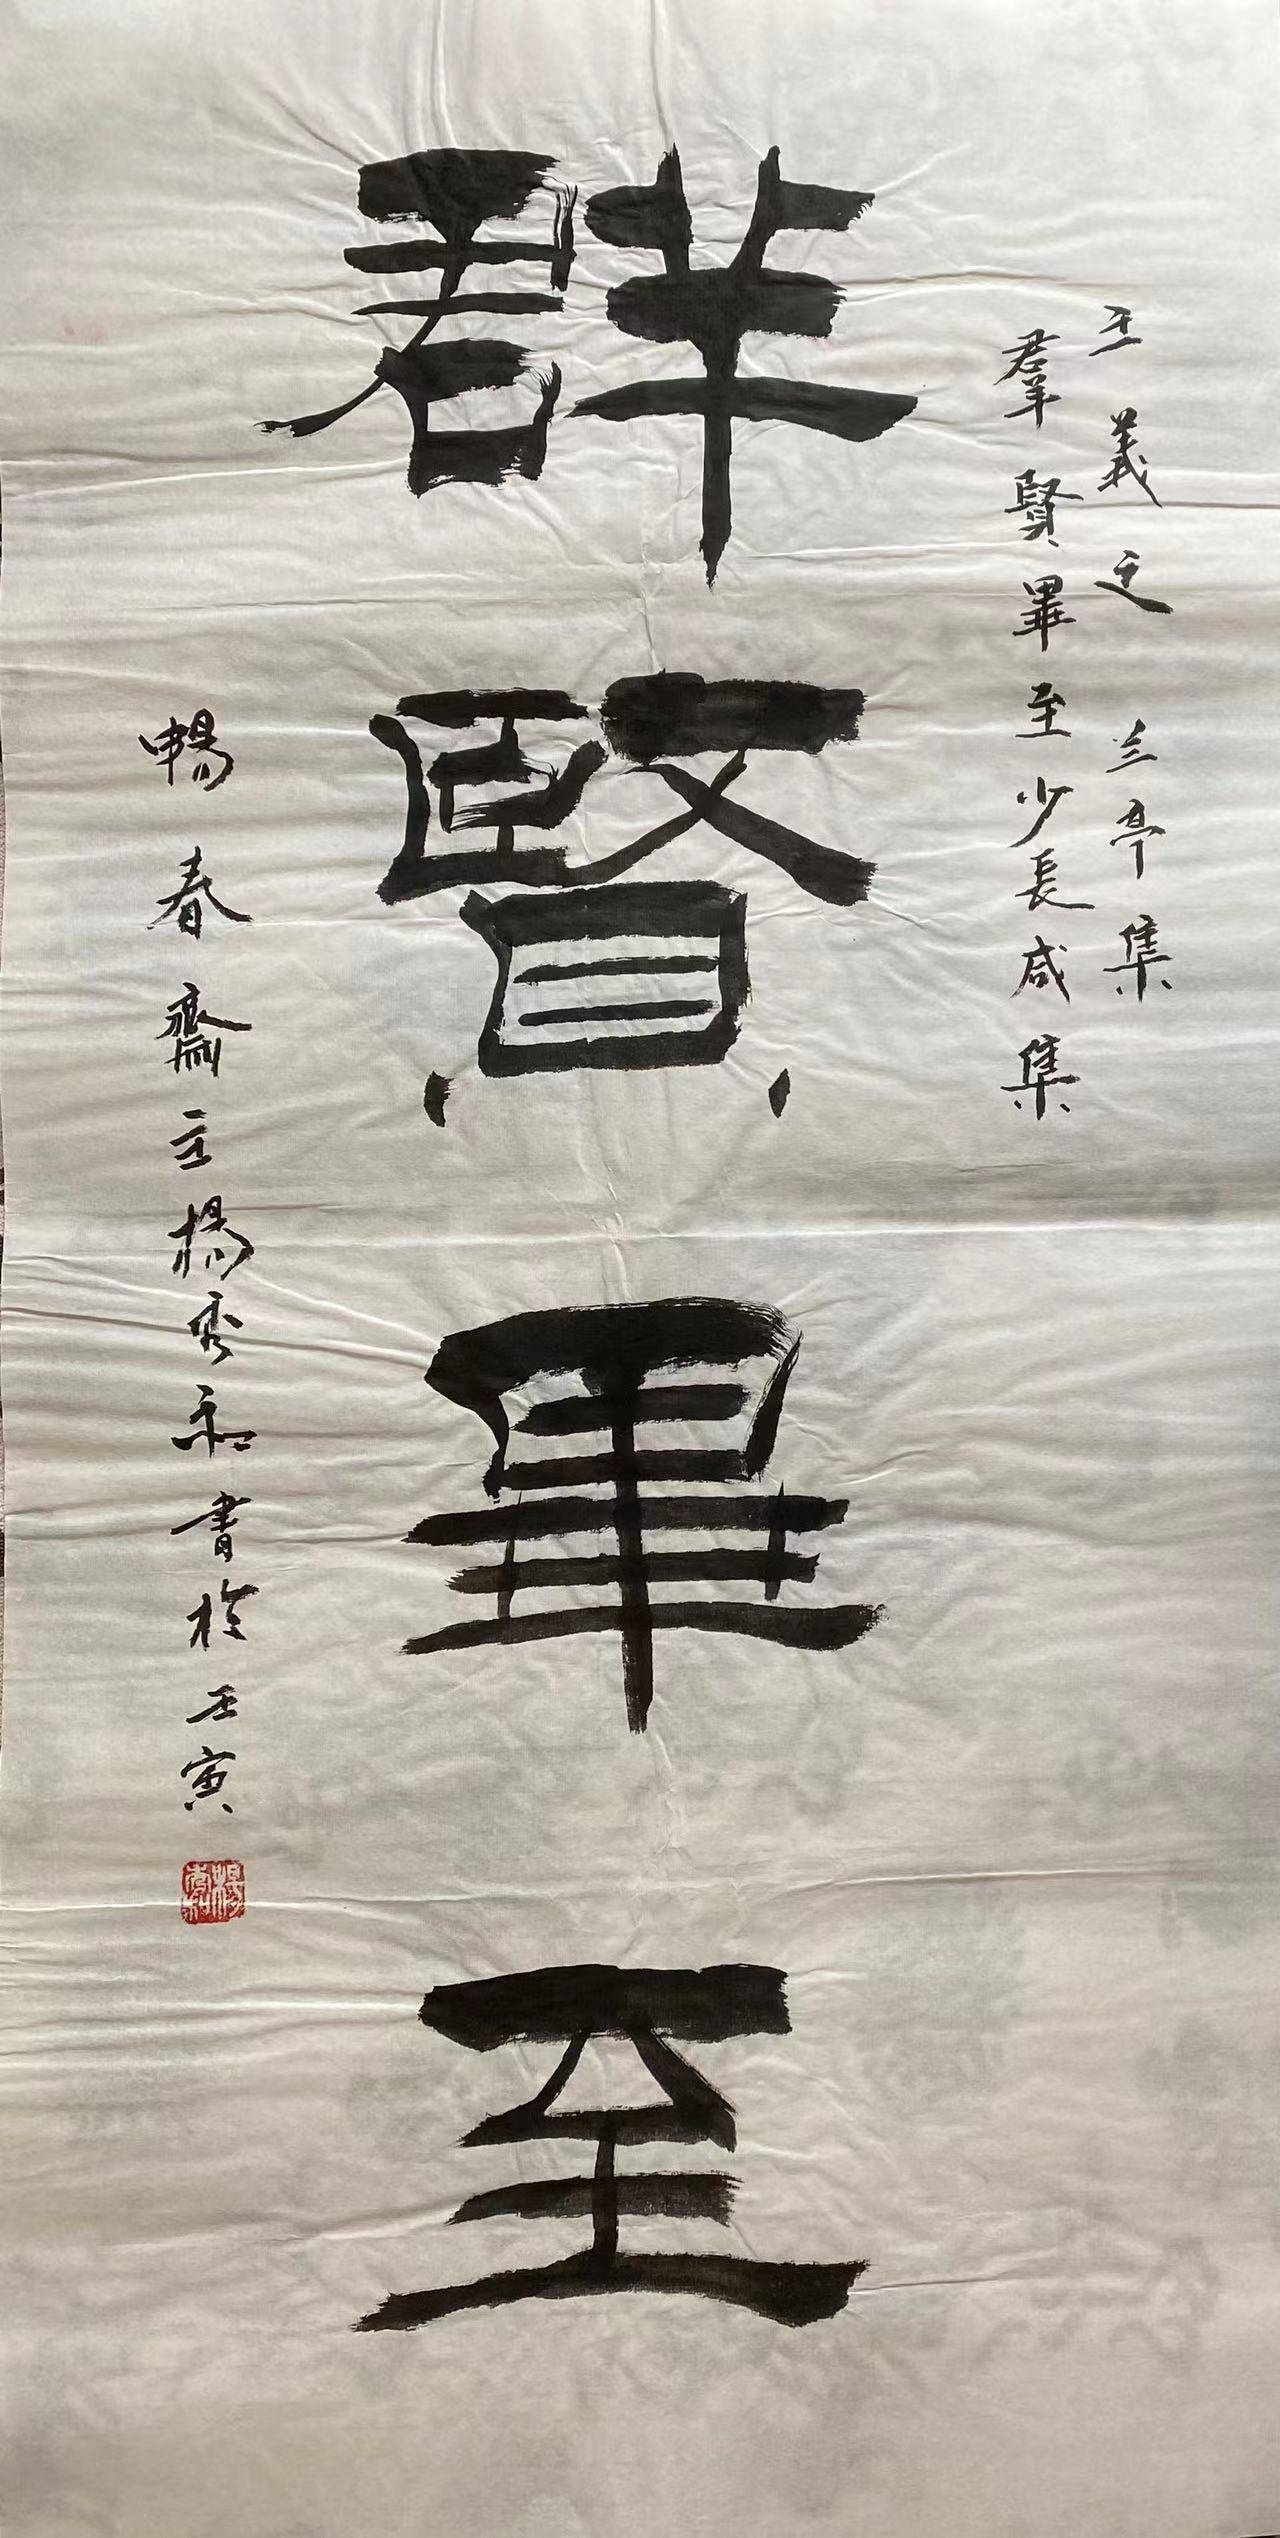 王羲之 兰亭集
羣賢畢至少長咸集
群賢畢至
暢春齋主楊秀和書於壬寅
楊秀和